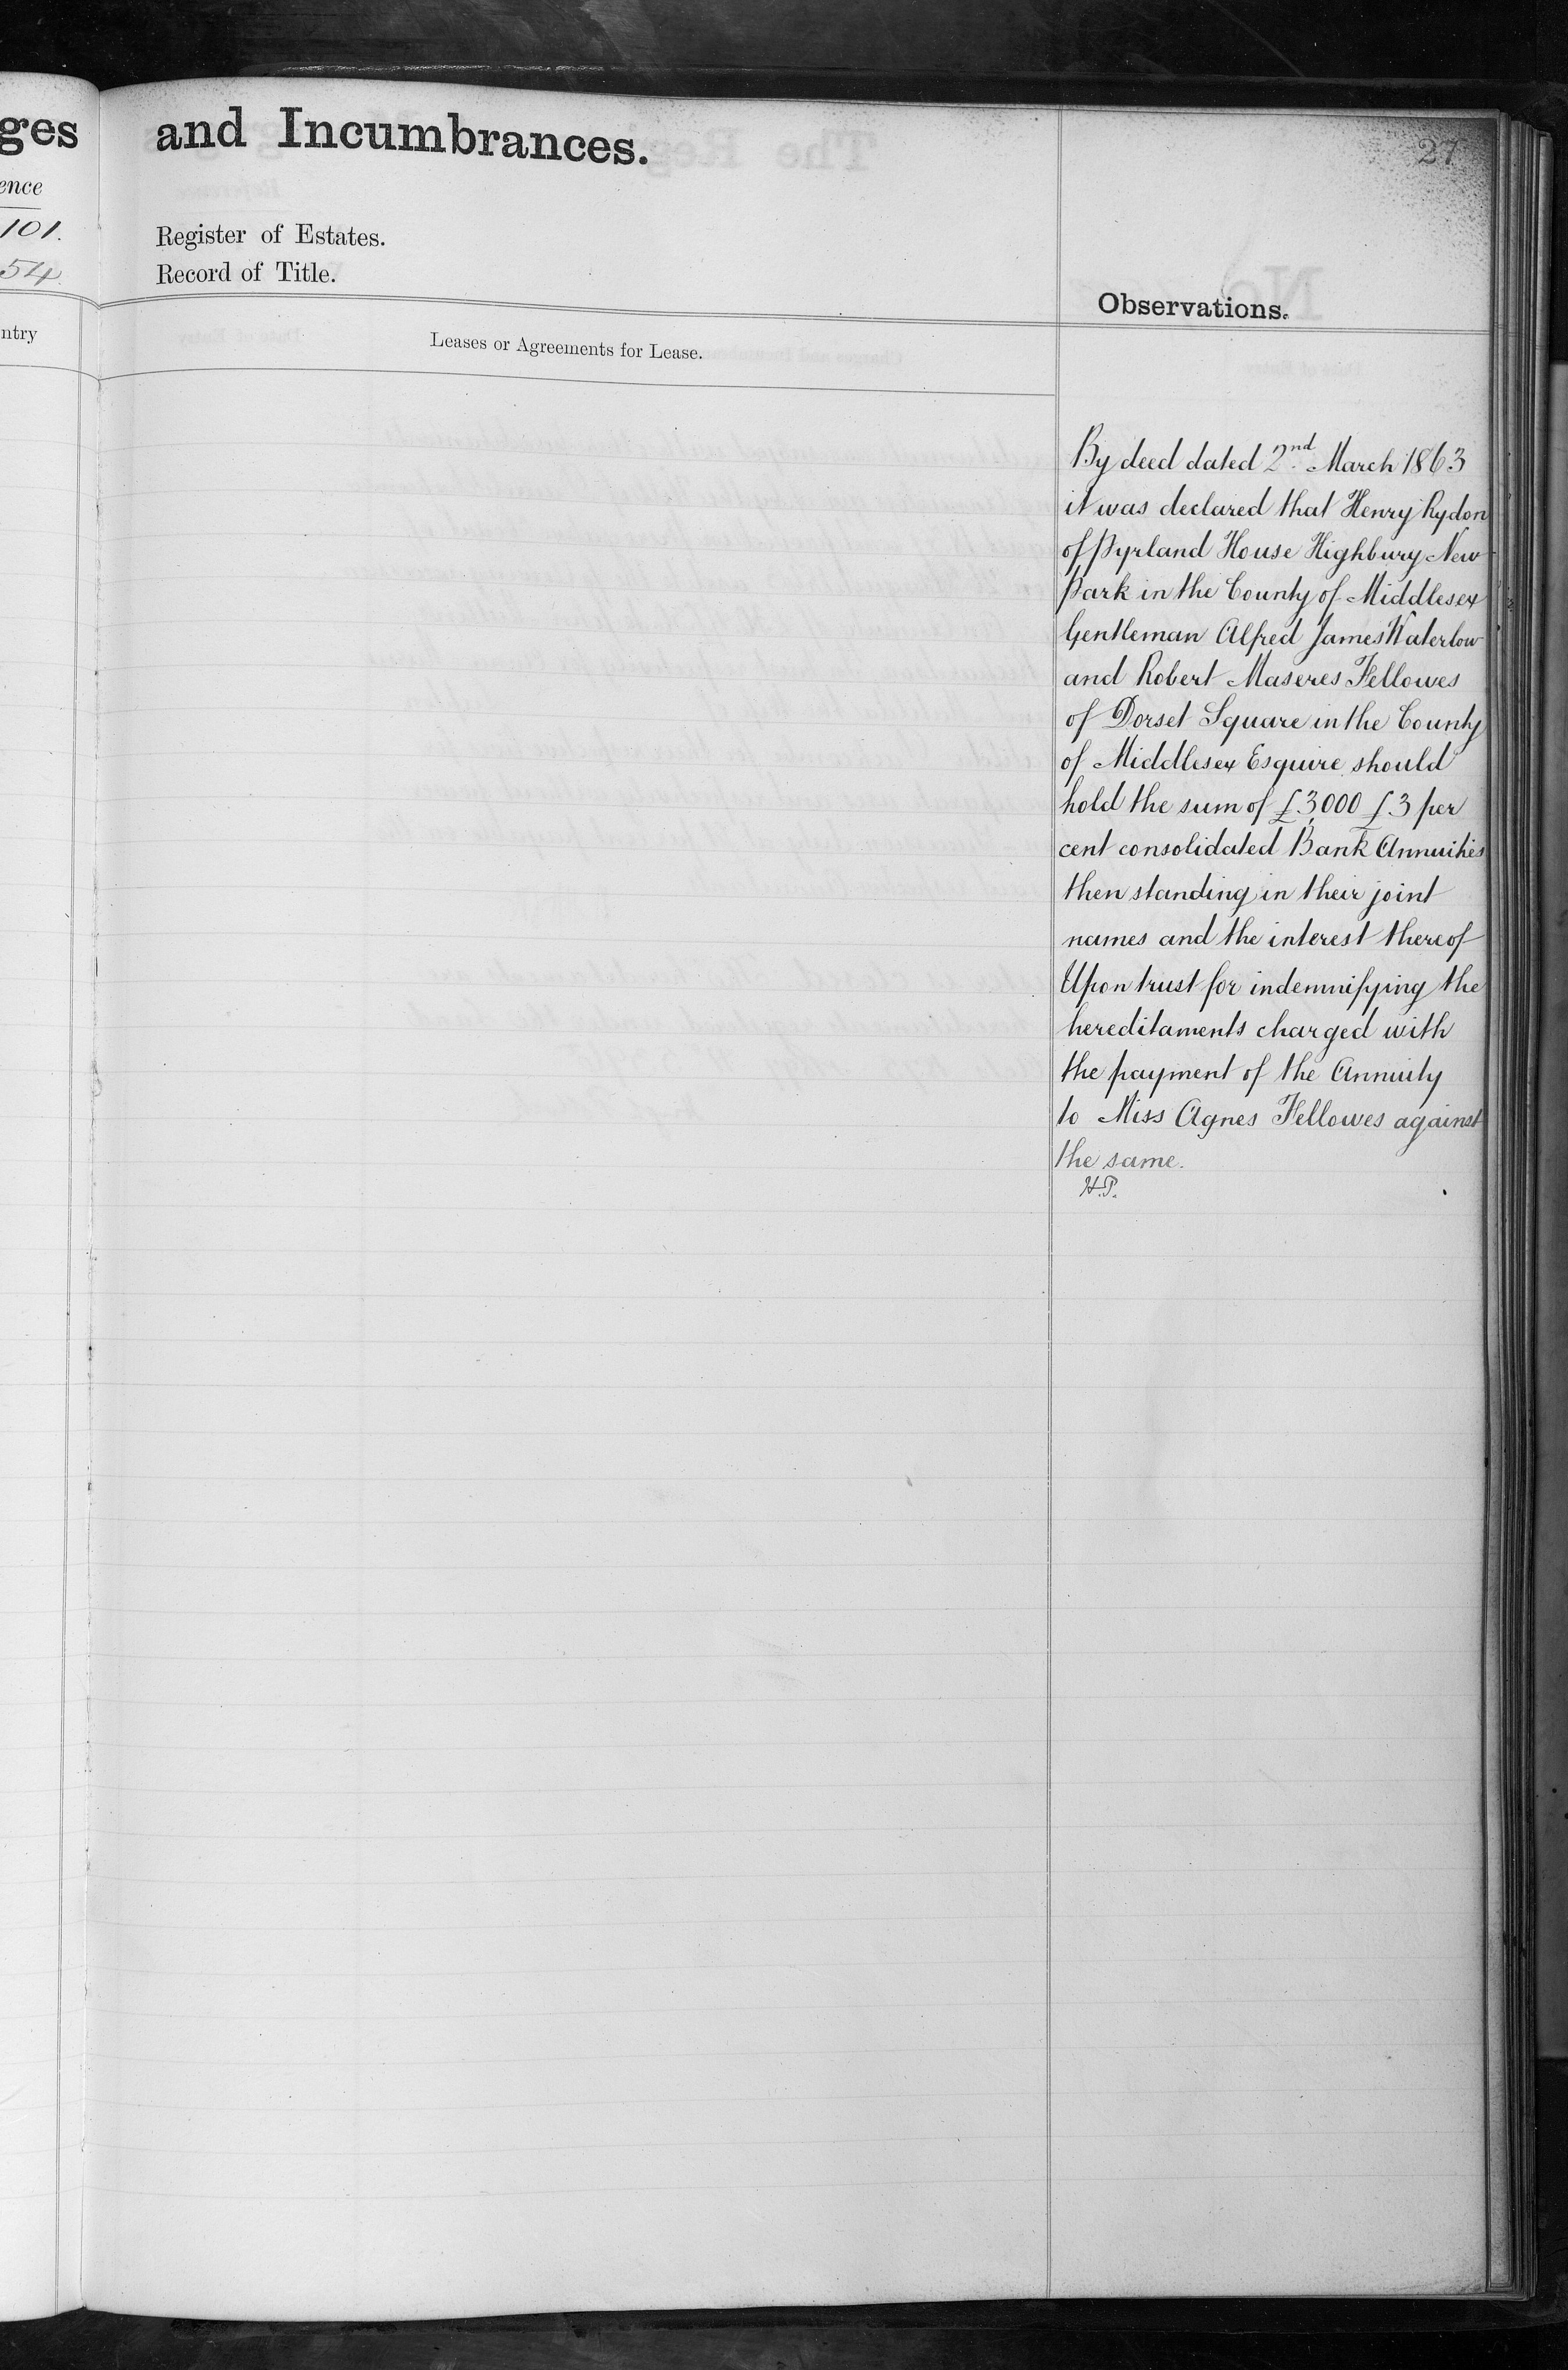 ges
ence
101.
54.
ntry
and Incumbrances.
27
Register of Estates.
Record of Title.
Observations.
Leases or Agreements for Lease.
By deed dated 2nd March 1863
it was declared that Henry Rydon
of Pyrland House Highbury New
Park in the County of Middlesex
Gentleman Alfred James Waterlow
and Robert Maseres Fellowes
of Dorset Square in the County
of Middlesex Esquire should
hold the sum of £3,000 £3 per
cent consolidated Bank Annuities
then standing in their joint
names and the interest thereof
Upon trust for indemnifying the
hereditaments charged with
the payment of the Annuity
to Miss Agnes Fellowes against
the same.
H.P.